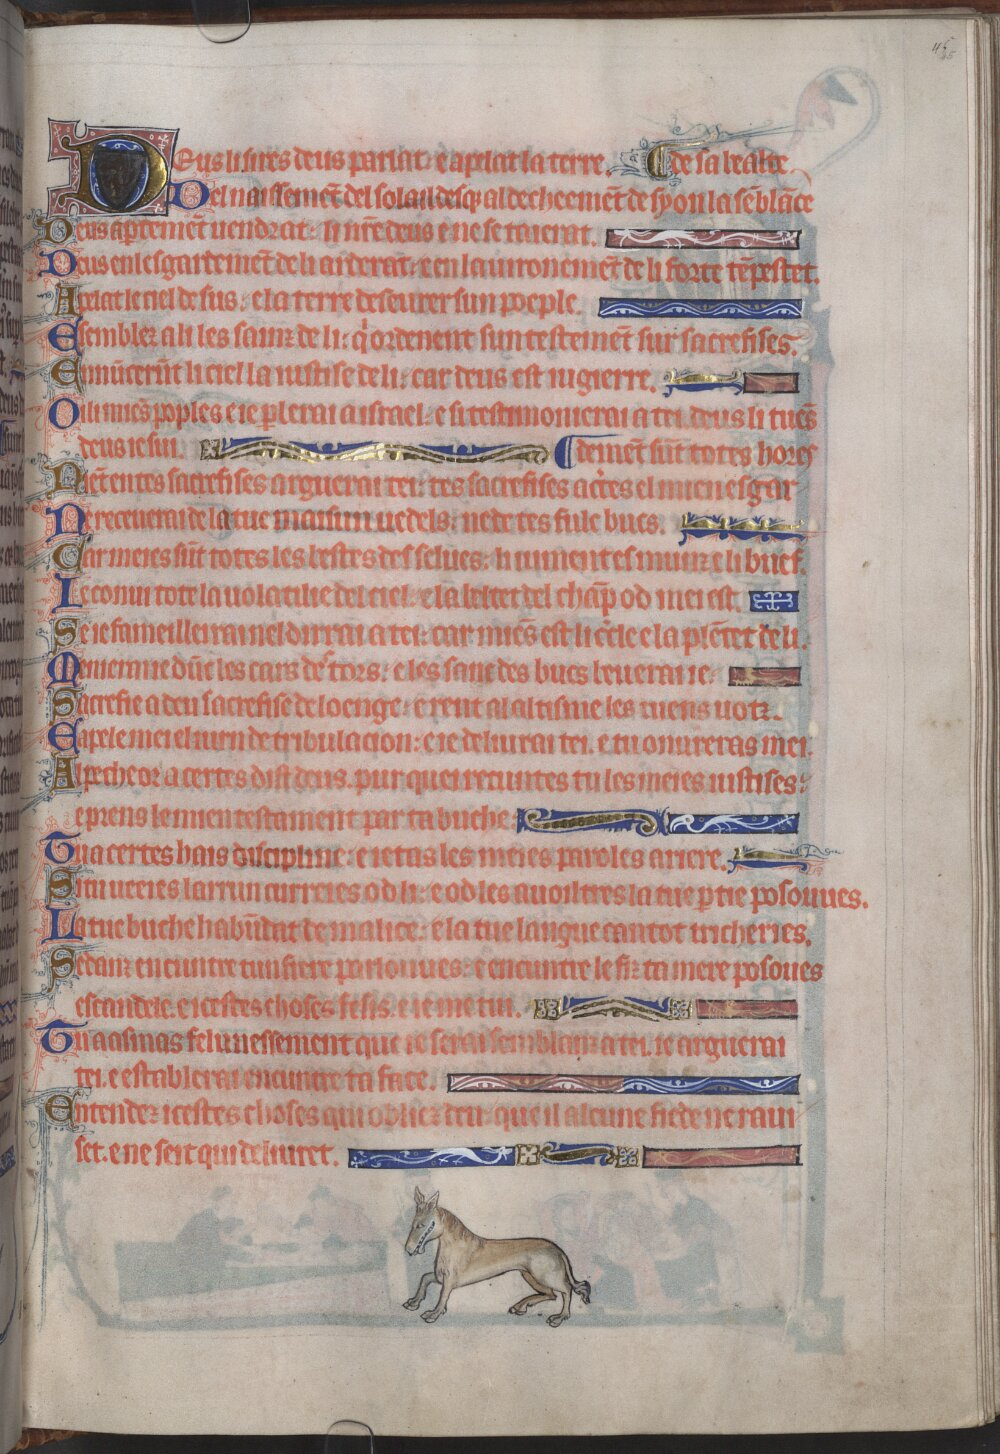 Deus li sires deus parlat: e apelat la terre. de sa bealte
Del naissement del solail desq̃ al decheemẽt de syon la sẽblãce
Deus aptemẽt vendrat: li nr̃e deus e ne se taiserat.
Deus en lesgardemẽt de li arderat: e en lavironemẽt de li forte tẽpestet.
Apelat le ciel desus: e la terre desevrer sun poeple.
Essemblez a li les sainz de li: q̇ ordenent sun testemẽt sur sacrefises.
E nũcerũt li ciel la iustise de li: car deus est iugierre.
Oili mies poples e ie p̱lerai a israel: e si testimonierai a tei. deus li tuẽs
deus ie sui. demẽt sũt totes hores
Niẽt en tes sacrefises arguerai tei: tes sacrefises acr̃es el mien esgar
Ne receverai de la tue maisun vedels: ne de tes fulc bucs.
Car meies sũt totes les bestes des selves: li iument es munz e li buef.
Ie conui tote la volatilie del ciel: e la beltet del chãp od mei est
Se ie fameillerai nel dirrai a tei: car miẽs est li cr̃cle e la plẽtet de li.
Meniemie dũc les carz de tors: e les sanc des bucs beverai ie.
Sacrefie a deu sacrefise de loenge: e rent al altisme les tuens votz.
E apele mei el iurn de tribulacion: e ie deliverai tei. e tu onureras mei.
Al pecheor acertes dist deus. pur quei recuntes tu les meies iustises:
e prens le mien testament par ta buche
Tu acertes hais discipline: e ietas les meies paroles ariere.
Si tu veeies larrun curreies od li: e od les avoiltres la tue p̱tie posouues.
La tue buche habũdat de malice: e la tue langue cantot tricheries.
Sedanz encuntre tun frere parlouues: e encuntre le fiz ta mere posoues
escandele. e icestes choses fesis. e ie me tui.
Tu aasmas felunessement que ie serai semblanz a tei. ie arguerai
tei. e establerai encuntre ta face.
Entendez icestes choses qui obliez deu: que il alcune fiede ne ravi
set. e ne seit qui delivret.